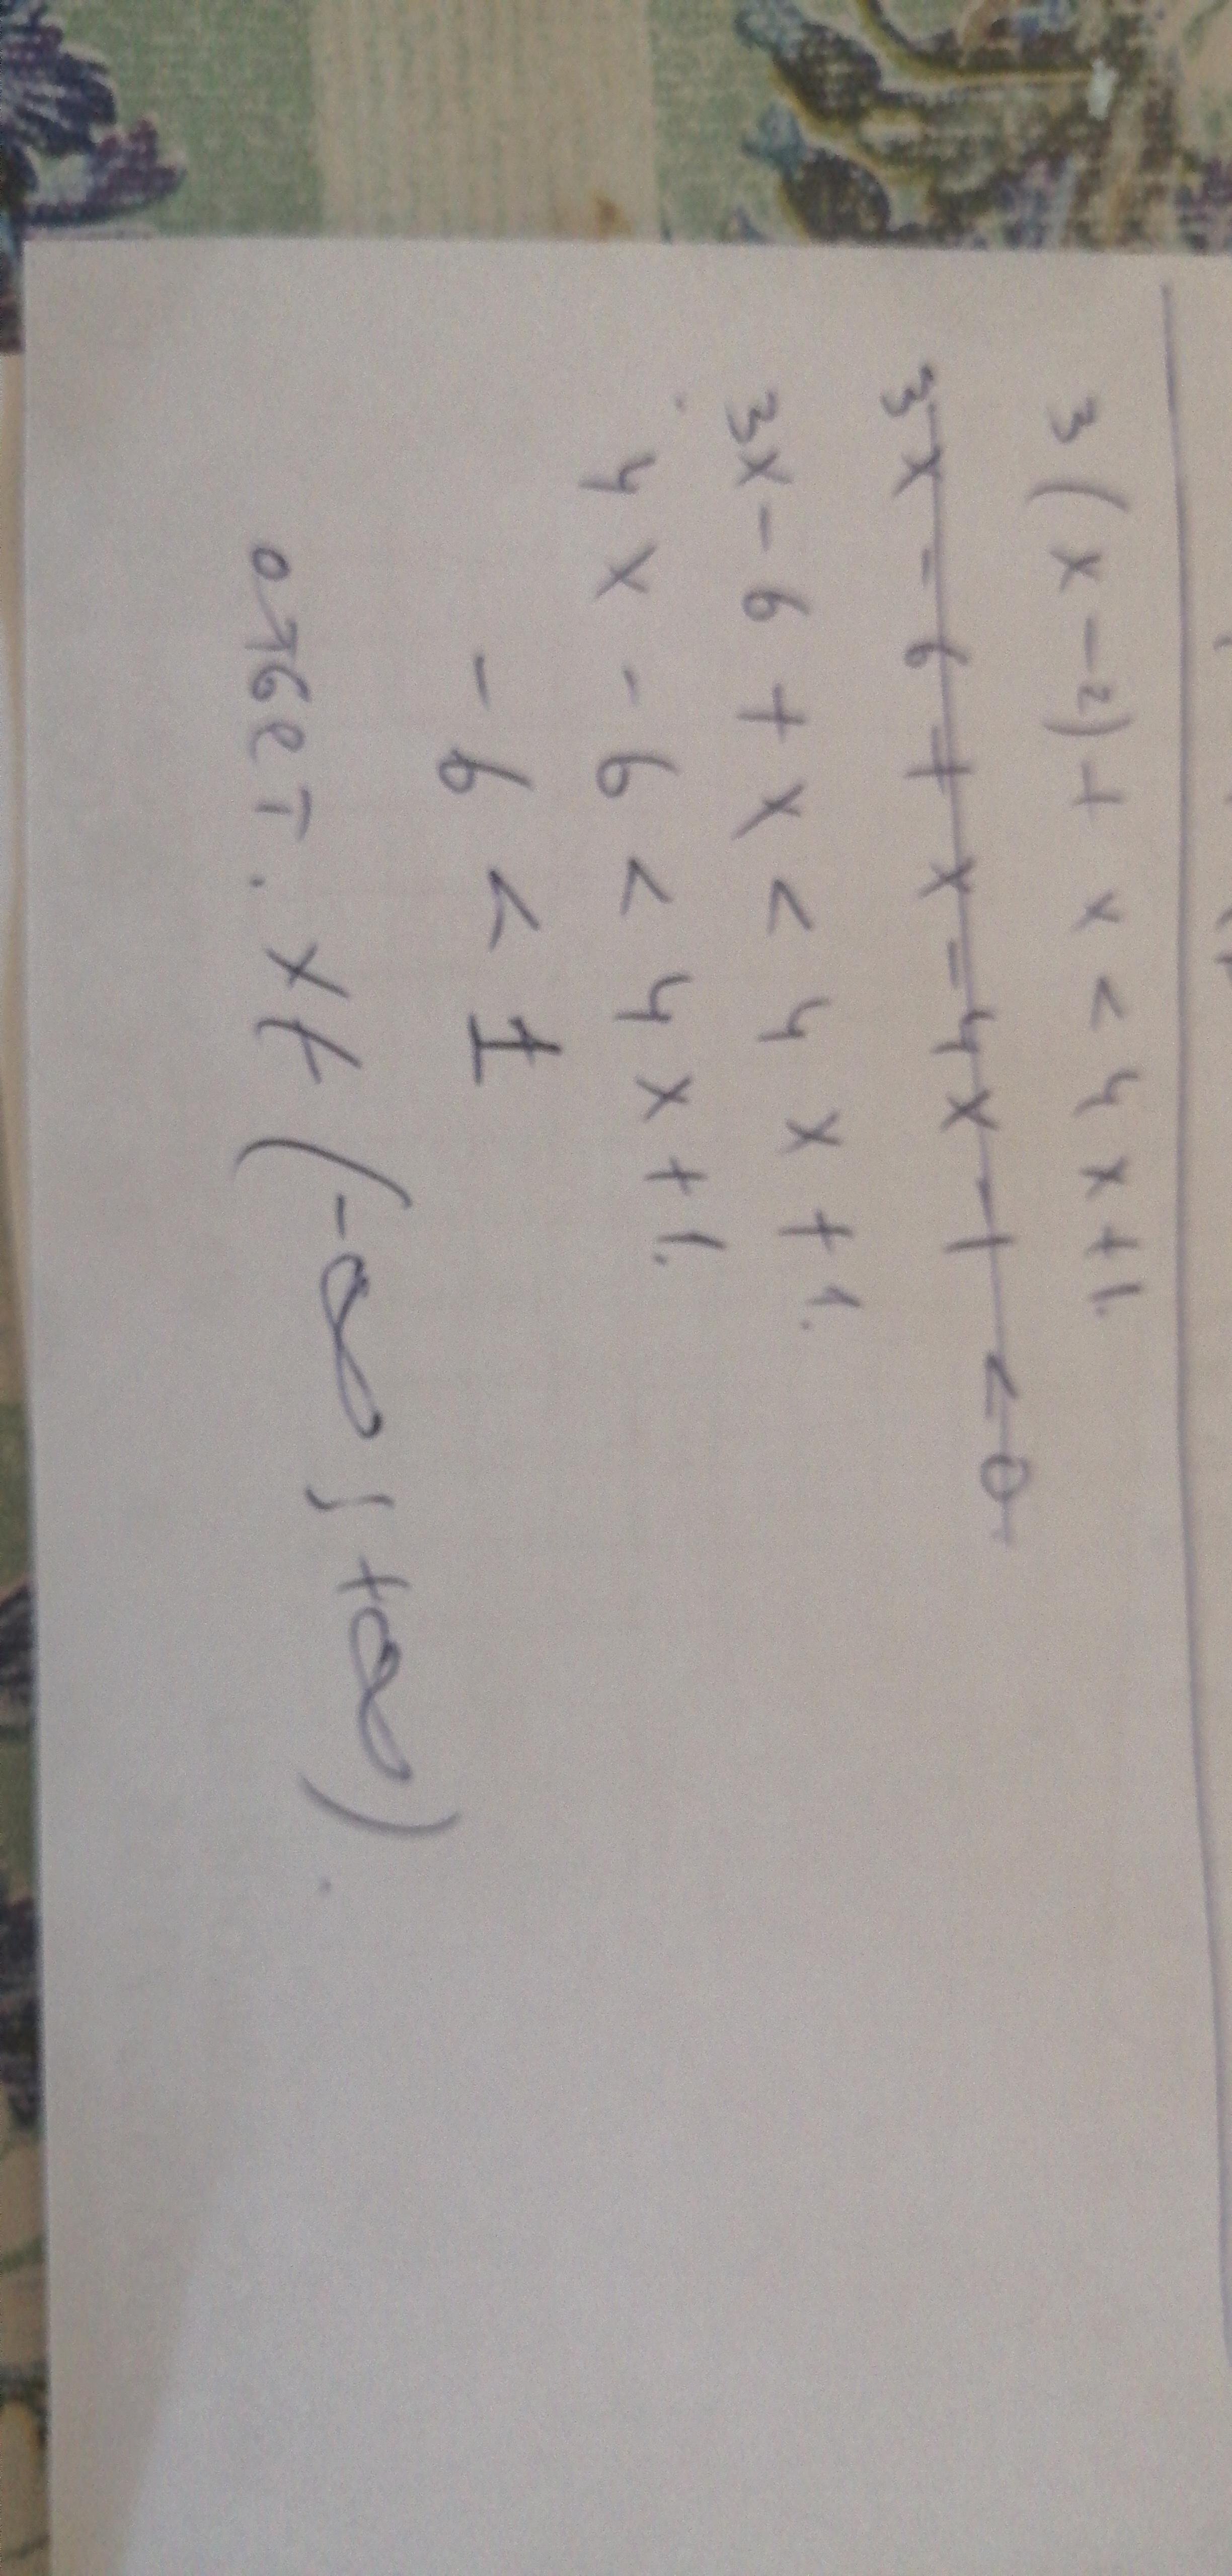 3(x-2)+x<4x+1.
3x-6+x-4x-1<0
3x-6+x<4x+1.
4x-6<4x+1.
-6<1
ответ. x∈(-∞;+∞).